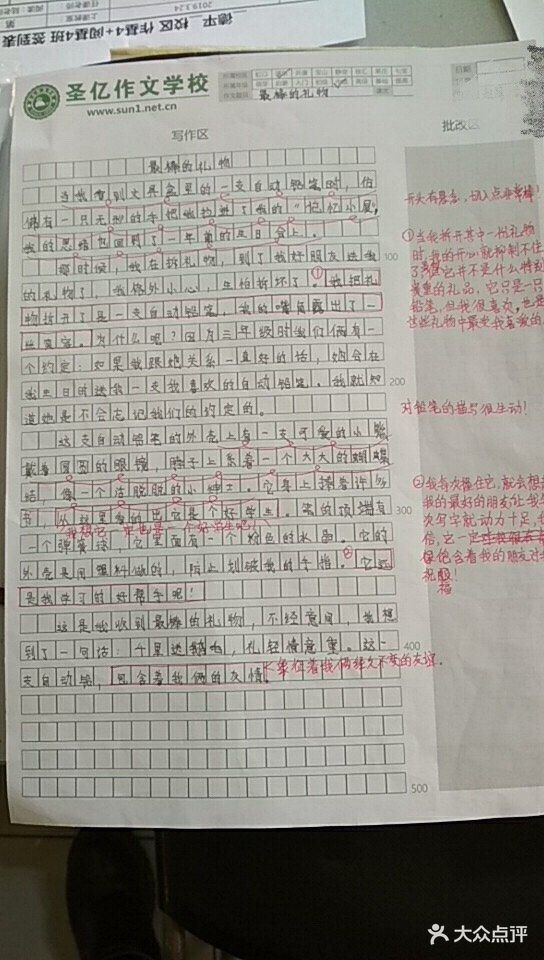 德平 校区 作基4+阅基4班 签到表
2019.3.24
圣亿作文学校
www.sun1.net.cn
最棒的礼物
写作区
批改区
最棒的礼物
当我看到文具盒里的一支自动铅笔时，仿
佛有一只无形的手把我拉进了我的“记忆小屋，
我的思绪也回到了一年前的生日会上。
那时候，我在拆礼物，到了我好朋友送我
100
的礼物了，我格外小心，生怕拆坏了。①我把礼
物拆开了是一支自动铅笔，我的嘴角露出了一
丝笑容。为什么呢？因为三年级时我们俩有一
个约定：如果我跟她关系一直好的话，她会在
我生日时送我一支我喜欢的自动铅笔。我就知
200
道她是不会忘记我们的约定的。
这支自动铅笔的外壳上有一支可爱的小熊
戴着圆圆的眼镜，脖子上系着一个大大的蝴蝶
结，像一个活脱脱的小绅士。它身上揣着许多
300
书，从这里看的出它是个好学生。笔的顶端有
我想它一定也是一个好学生吧！
一个弹簧球，它里面有一个粉色的水晶。它的
外壳是用塑料做的，防止划破我的手指。②它还
是我学习的好帮手呢！
这是我收到最棒的礼物，不经意间，我想
到了一句话：千里送鹅毛，礼轻情意重。这一
400
支自动笔，包含着我俩的友情。
象征着我俩持久不变的友谊.
500
开头有悬念，切入点非常棒！
①当我拆开其中一份礼物
时，我的开心就抑制不住
了，它并不是什么特别
贵重的礼品，它只是一只
铅笔，但我很喜欢，也是
这些礼物中最受我喜爱的
对铅笔的描写很生动！
②我每次握住它，就会想起
我的最好的朋友，让我每
次写字就动力十足，
信，它一定
保佑含着我的朋友对我
祝服！
福
大众点评